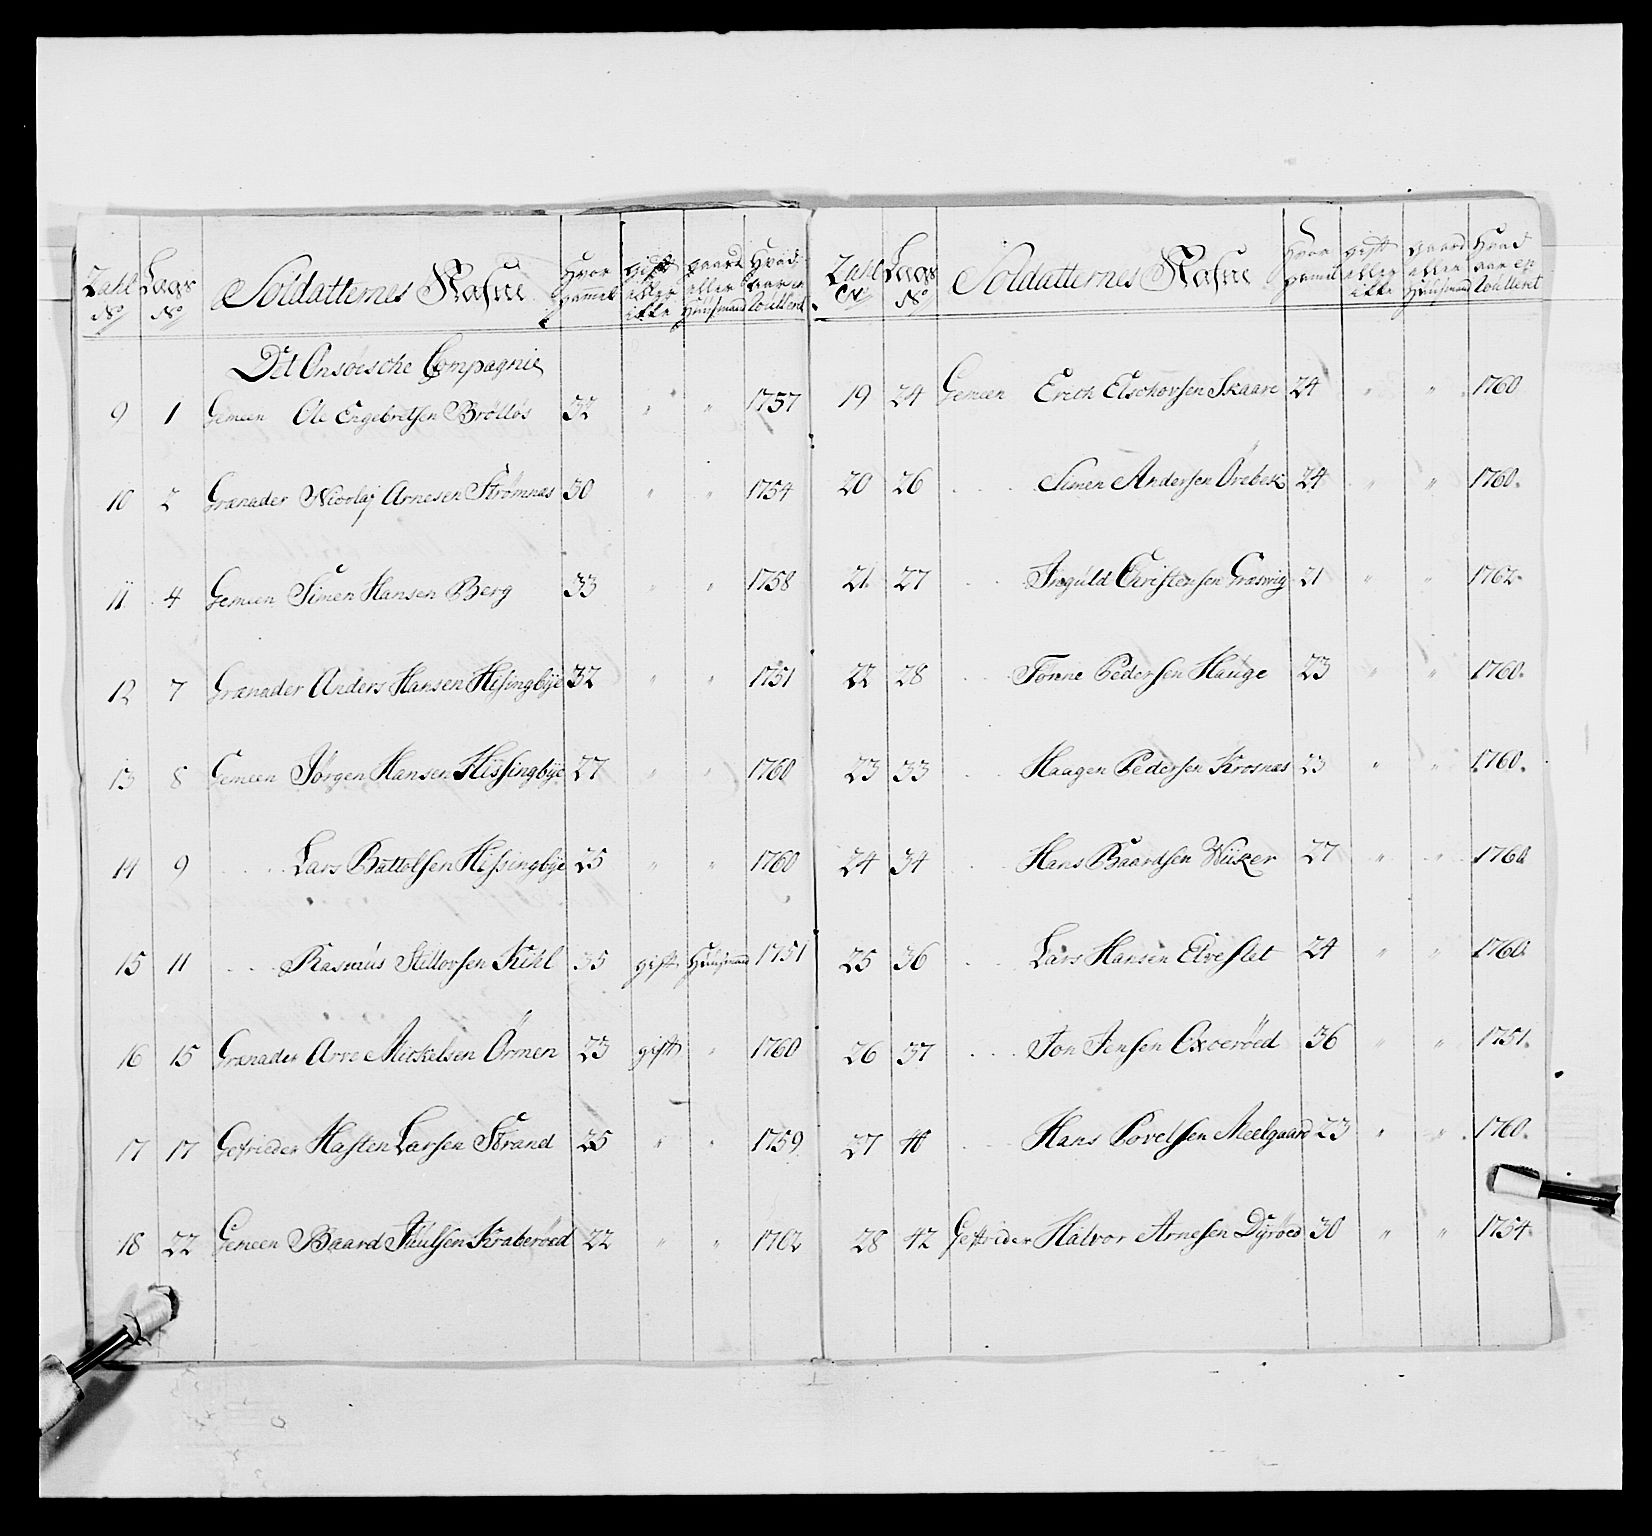 Zahl No | Lægs No | Soldatternes Nafne | Hvor gammel | gift eller ikke | gaard eller Huusmand | Hvad aar er Rullert
Det Onsøesche Compagnie
9 | 1 | Gemeen Ole Engebretsen Brølløs | 32 | " | " | 1757
10 | 2 | Grænader Nicolaj Arnesen Strømnæs | 30 | " | " | 1754
11 | 4 | Gemeen Simen Hansen Berg | 33 | " | " | 1758
12 | 7 | Grænader Anders Hansen Hissingbye | 32 | " | " | 1751
13 | 8 | Gemeen Jørgen Hansen Hissingbye | 27 | " | " | 1760
14 | 9 | .... Lars Battolfsen Hissingbye | 25 | " | " | 1760
15 | 11 | .... Rasmus Kihl | 35 | gift | Huusmand | 1751
16 | 15 | Grænader Arve Mickelsen Örmen | 23 | gift | " | 1760
17 | 17 | Gefrieder Hasten Larsen Strand | 25 | " | " | 1759
18 | 22 | Gemeen Baard Kraberöed | 22 | " | " | 1762
Zahl No | Lægs No | Soldatternes Nafne | Hvor gamel | gift eller ikke | gaard eller Huusmand | Hvad aar er Rulleret
19 | 24 | Gemeen Erich Skaare | 24 | " | " | 1760
20 | 26 | .... Simen Andersen Örebek | 24 | " | " | 1760.
21. | 27 | .. Inguld Christensen Græsvig | 21 | " | " | 1762.
22 | 28 | .... Tønne Pedersen Hauge | 23 | " | " | 1760.
23 | 33 | .. Haagen Pedersen Krosnæs | 23 | " | " | 1760.
24 | 34 | .... Hans Baardsen Wiker | 27 | " | " | 1760
25 | 36 | .. Lars Hansen Elveflet | 24 | " | " | 1760.
26 | 37 | .... Jon Jensen Oxeröed | 36 | " | " | 1751.
27 | 40 | .... Hans Povelsen Meelgaard | 23 | " | " | 1760.
28 | 42 | Gefrider Halvor Arnesen Dyröed | 30 | " | " | 1754.